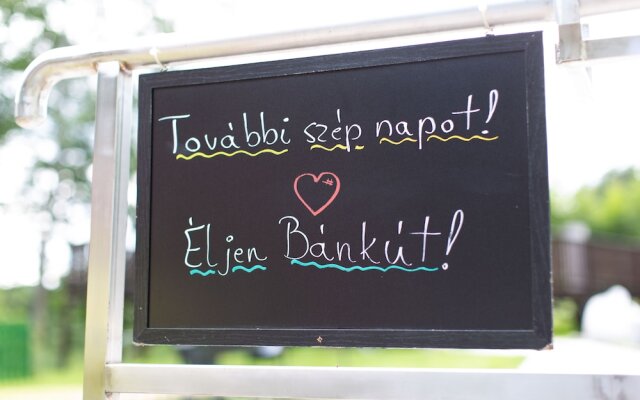 További szép napot!
Éljen Bánkút!